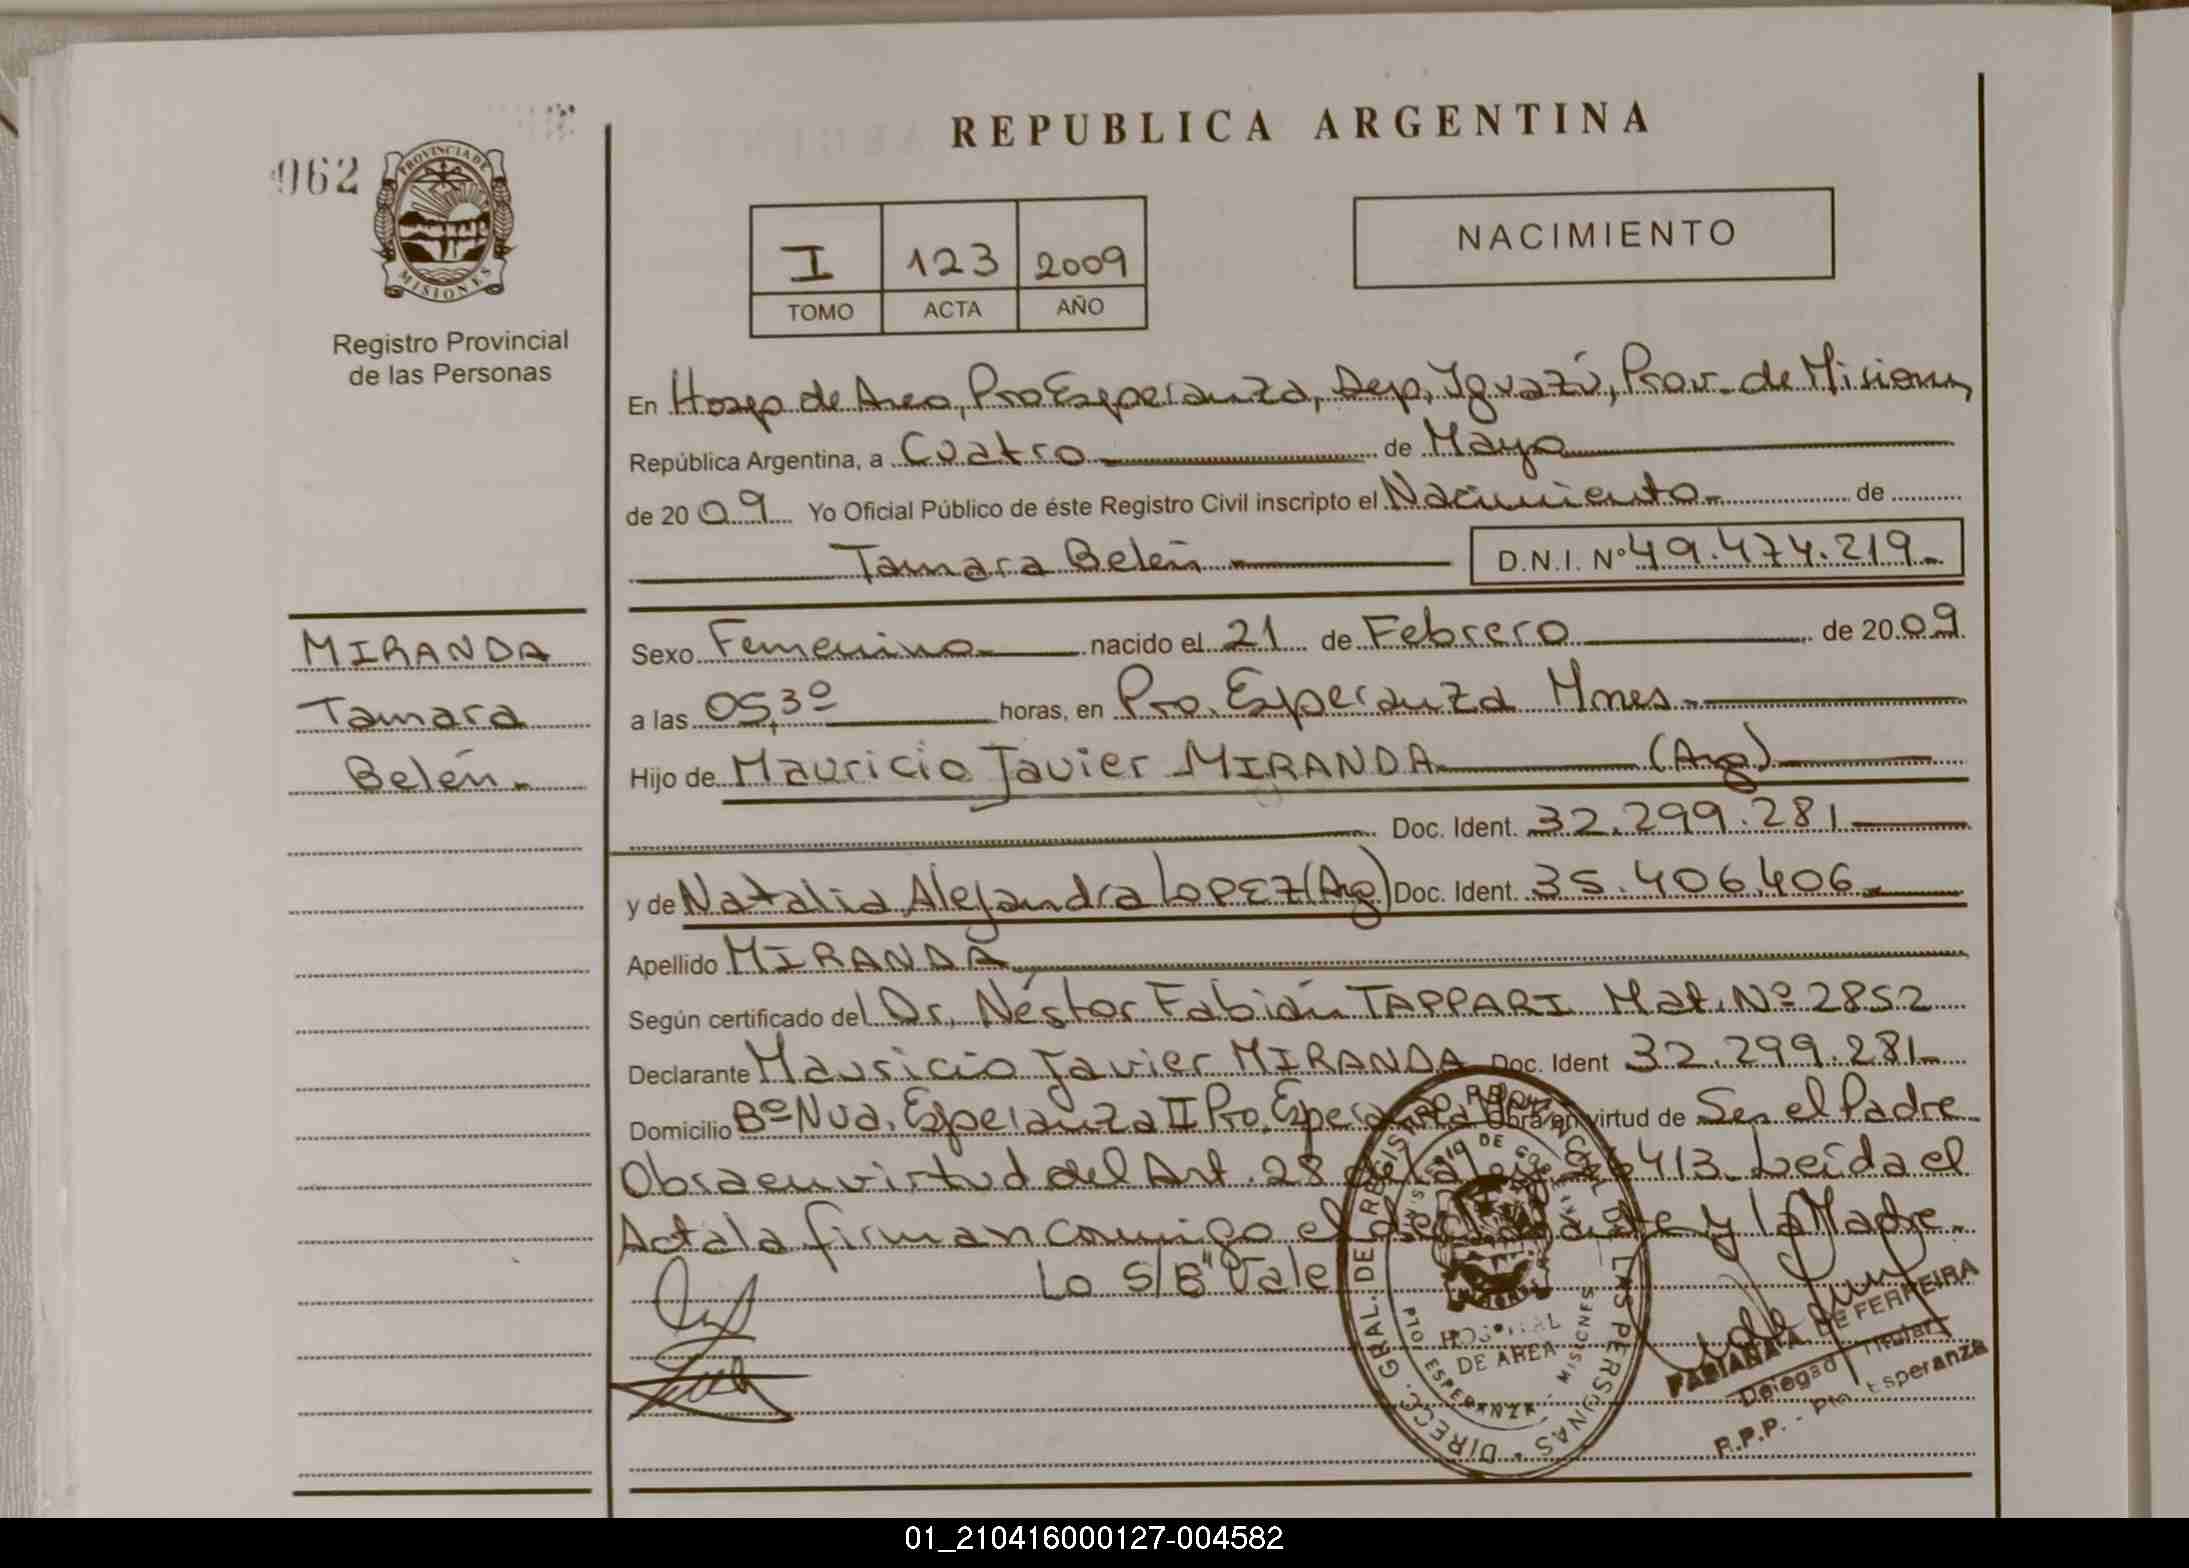 062
PROVINCIA DE
MISIONES
Registro Provincial
de las Personas
REPUBLICA ARGENTINA
I 123 2009
TOMO ACTA AÑO
NACIMIENTO
En Hosp de Area, Pto Esperanza, Dep. Iguazú, Prov. de Misiones,
República Argentina, a Cuatro de Mayo
de 2009 Yo Oficial Público de éste Registro Civil inscripto el Nacimiento de
Tamara Belén D.N.I. Nº 49.474.219.
MIRANDA
Tamara
Belén.
Sexo Femenino nacido el 21 de Febrero de 2009
a las 05,30 horas, en Pto. Esperanza Mnes.
Hijo de Mauricio Javier MIRANDA (Arg)
Doc. Ident. 32.299.281
y de Natalia Alejandra LOPEZ (Arg) Doc. Ident. 35.406.406.
Apellido MIRANDA
Según certificado del Dr. Néstor Fabián TAPPARI Mat. Nº 2852
Declarante Mauricio Javier MIRANDA Doc. Ident 32.299.281
Domicilio Bº Nva. Esperanza II Pto. Esperanza Obra en virtud de Ser el Padre
Obra en virtud del Art. 28 de la Ley 26413. Leída el
Acta la firman conmigo el declarante y la Madre.
Lo S/B "Vale
DIRECC. GRAL. DE REGISTRO PROVINCIAL DE LAS PERSONAS
MINISTERIO DE GOBIERNO
HOSPITAL
DE AREA
PTO. ESPERANZA - MISIONES
FABIANA A. DE FERREIRA
Delegad Titular
R.P.P. - Pto Esperanza
01_210416000127-004582